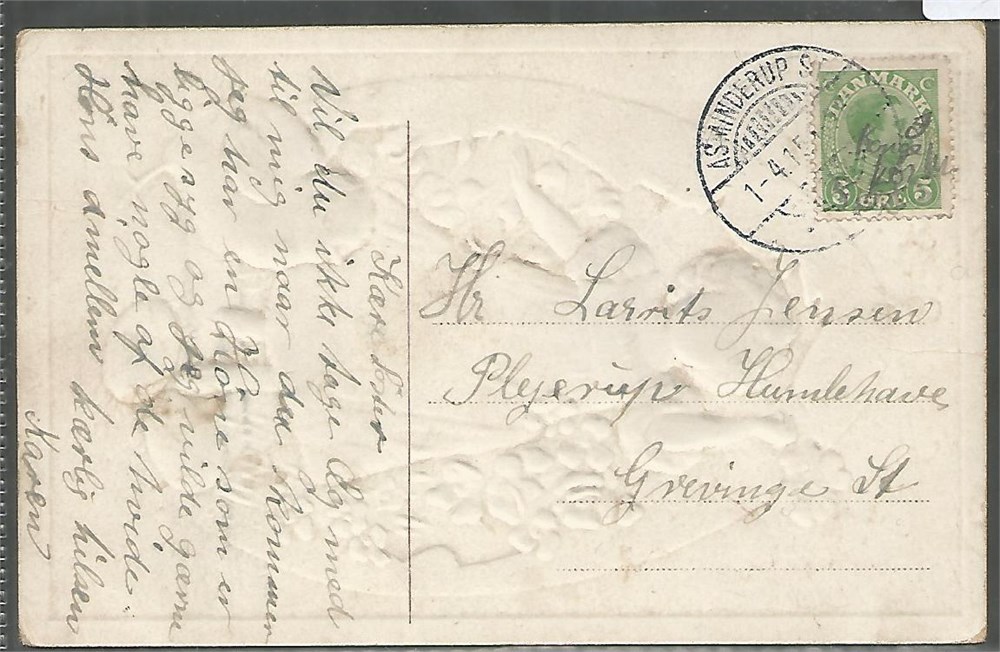 Kære Søster
Vil du ikke tage Æg med
til mig naar du kommer
jeg har en Høne som er
liggesyg og jeg vilde gærne
have nogle af de hvide
Høns dmellem kærlig hilsen
Karen
ASMINDERUP S
1-4.15
DANMARK
5 ØRE 5
Hr Larvits Jensen
Plejerup Humlehave
Grevinge St